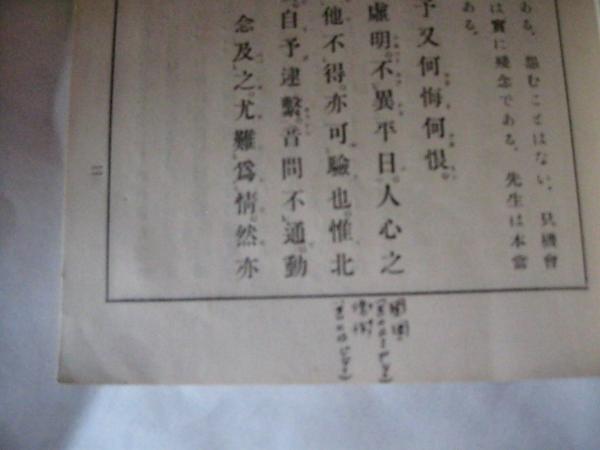 ある。怨むことはない、只機會
は實に殘念である。先生は本當
ある。
予又何悔何恨。
虛明。不異平日。人心之
他不得。亦可驗也。惟北
自予逮繫。音問不通。動
念及之。尤難爲情。然亦